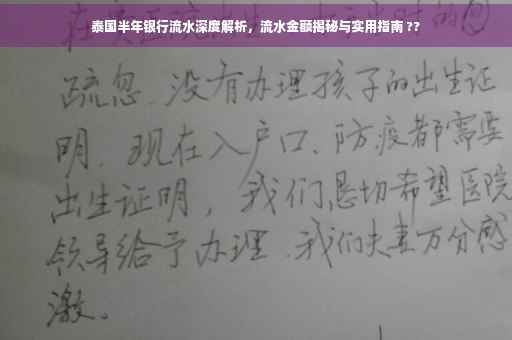 泰国半年银行流水深度解析，流水金额揭秘与实用指南 ??
疏忽、没有办理孩子的出生证
明。现在入户口、防疫都需要
出生证明，我们恳切希望医院
领导给予办理、我们夫妻万分感
激。